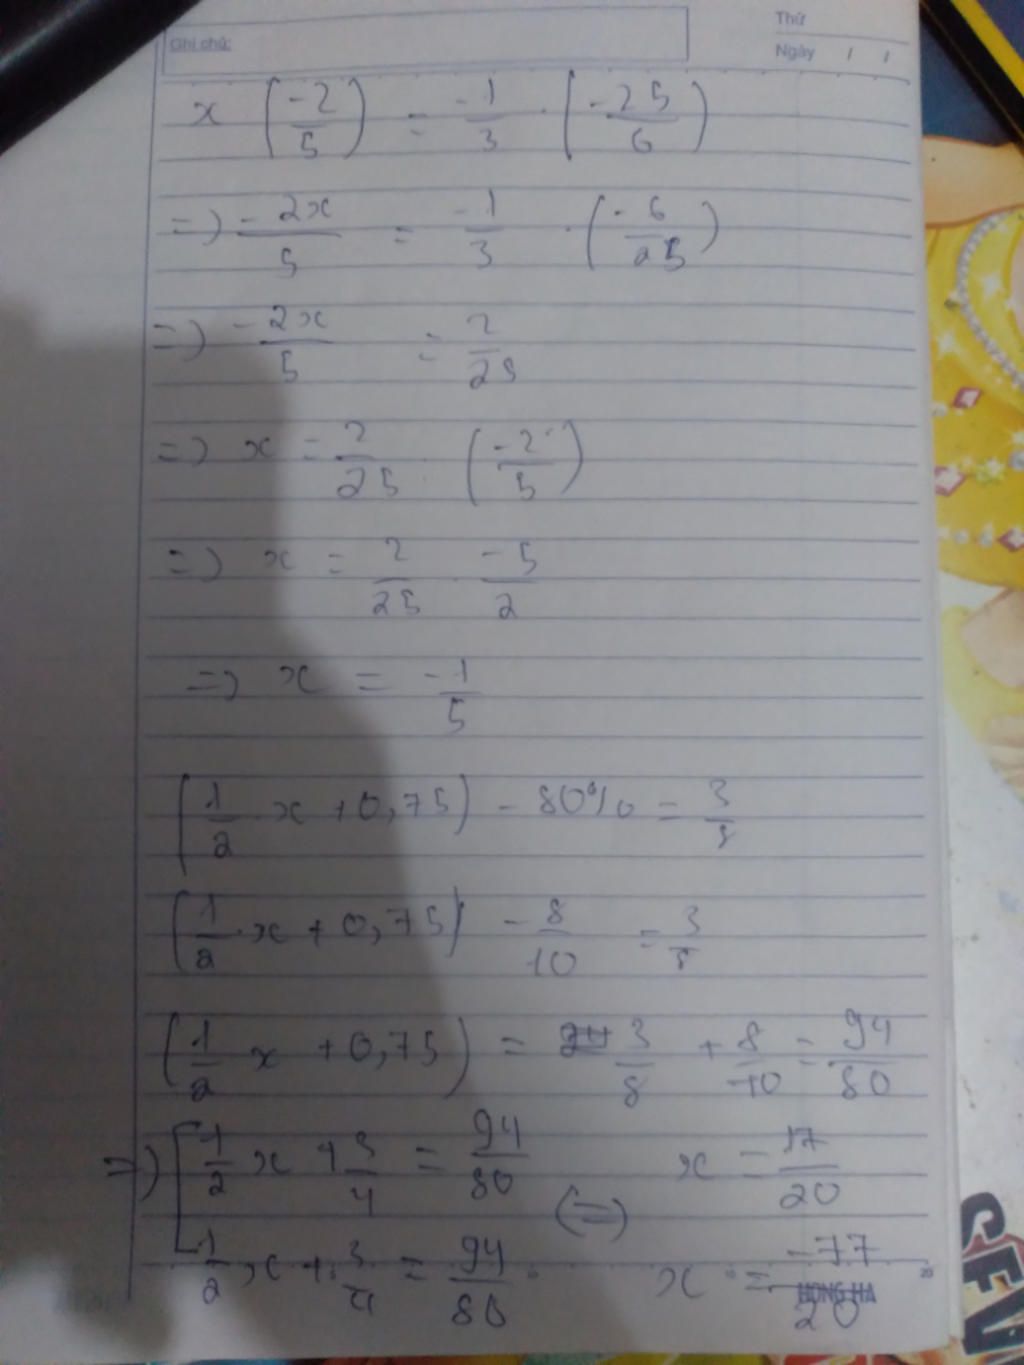 Thứ
Ghi chú:
Ngày / /
x (-2/5) = -1/3 · (-25/6)
=> -2x/5 = -1/3 · (-6/25)
=> -2x/5 = 2/25
=> x = 2/25 · (-2/5)
=> x = 2/25 · -5/2
=> x = -1/5
(1/2 x + 0,75) - 80% = 3/8
(1/2 · x + 0,75) - 8/10 = 3/8
(1/2 x + 0,75) = 3/8 + 8/10 = 94/80
=> [ 1/2 x + 3/4 = 94/80 x = 17/20
(=)
1/2 x + 3/4 = 94/80 x = -77/20
HONG HA
SFV